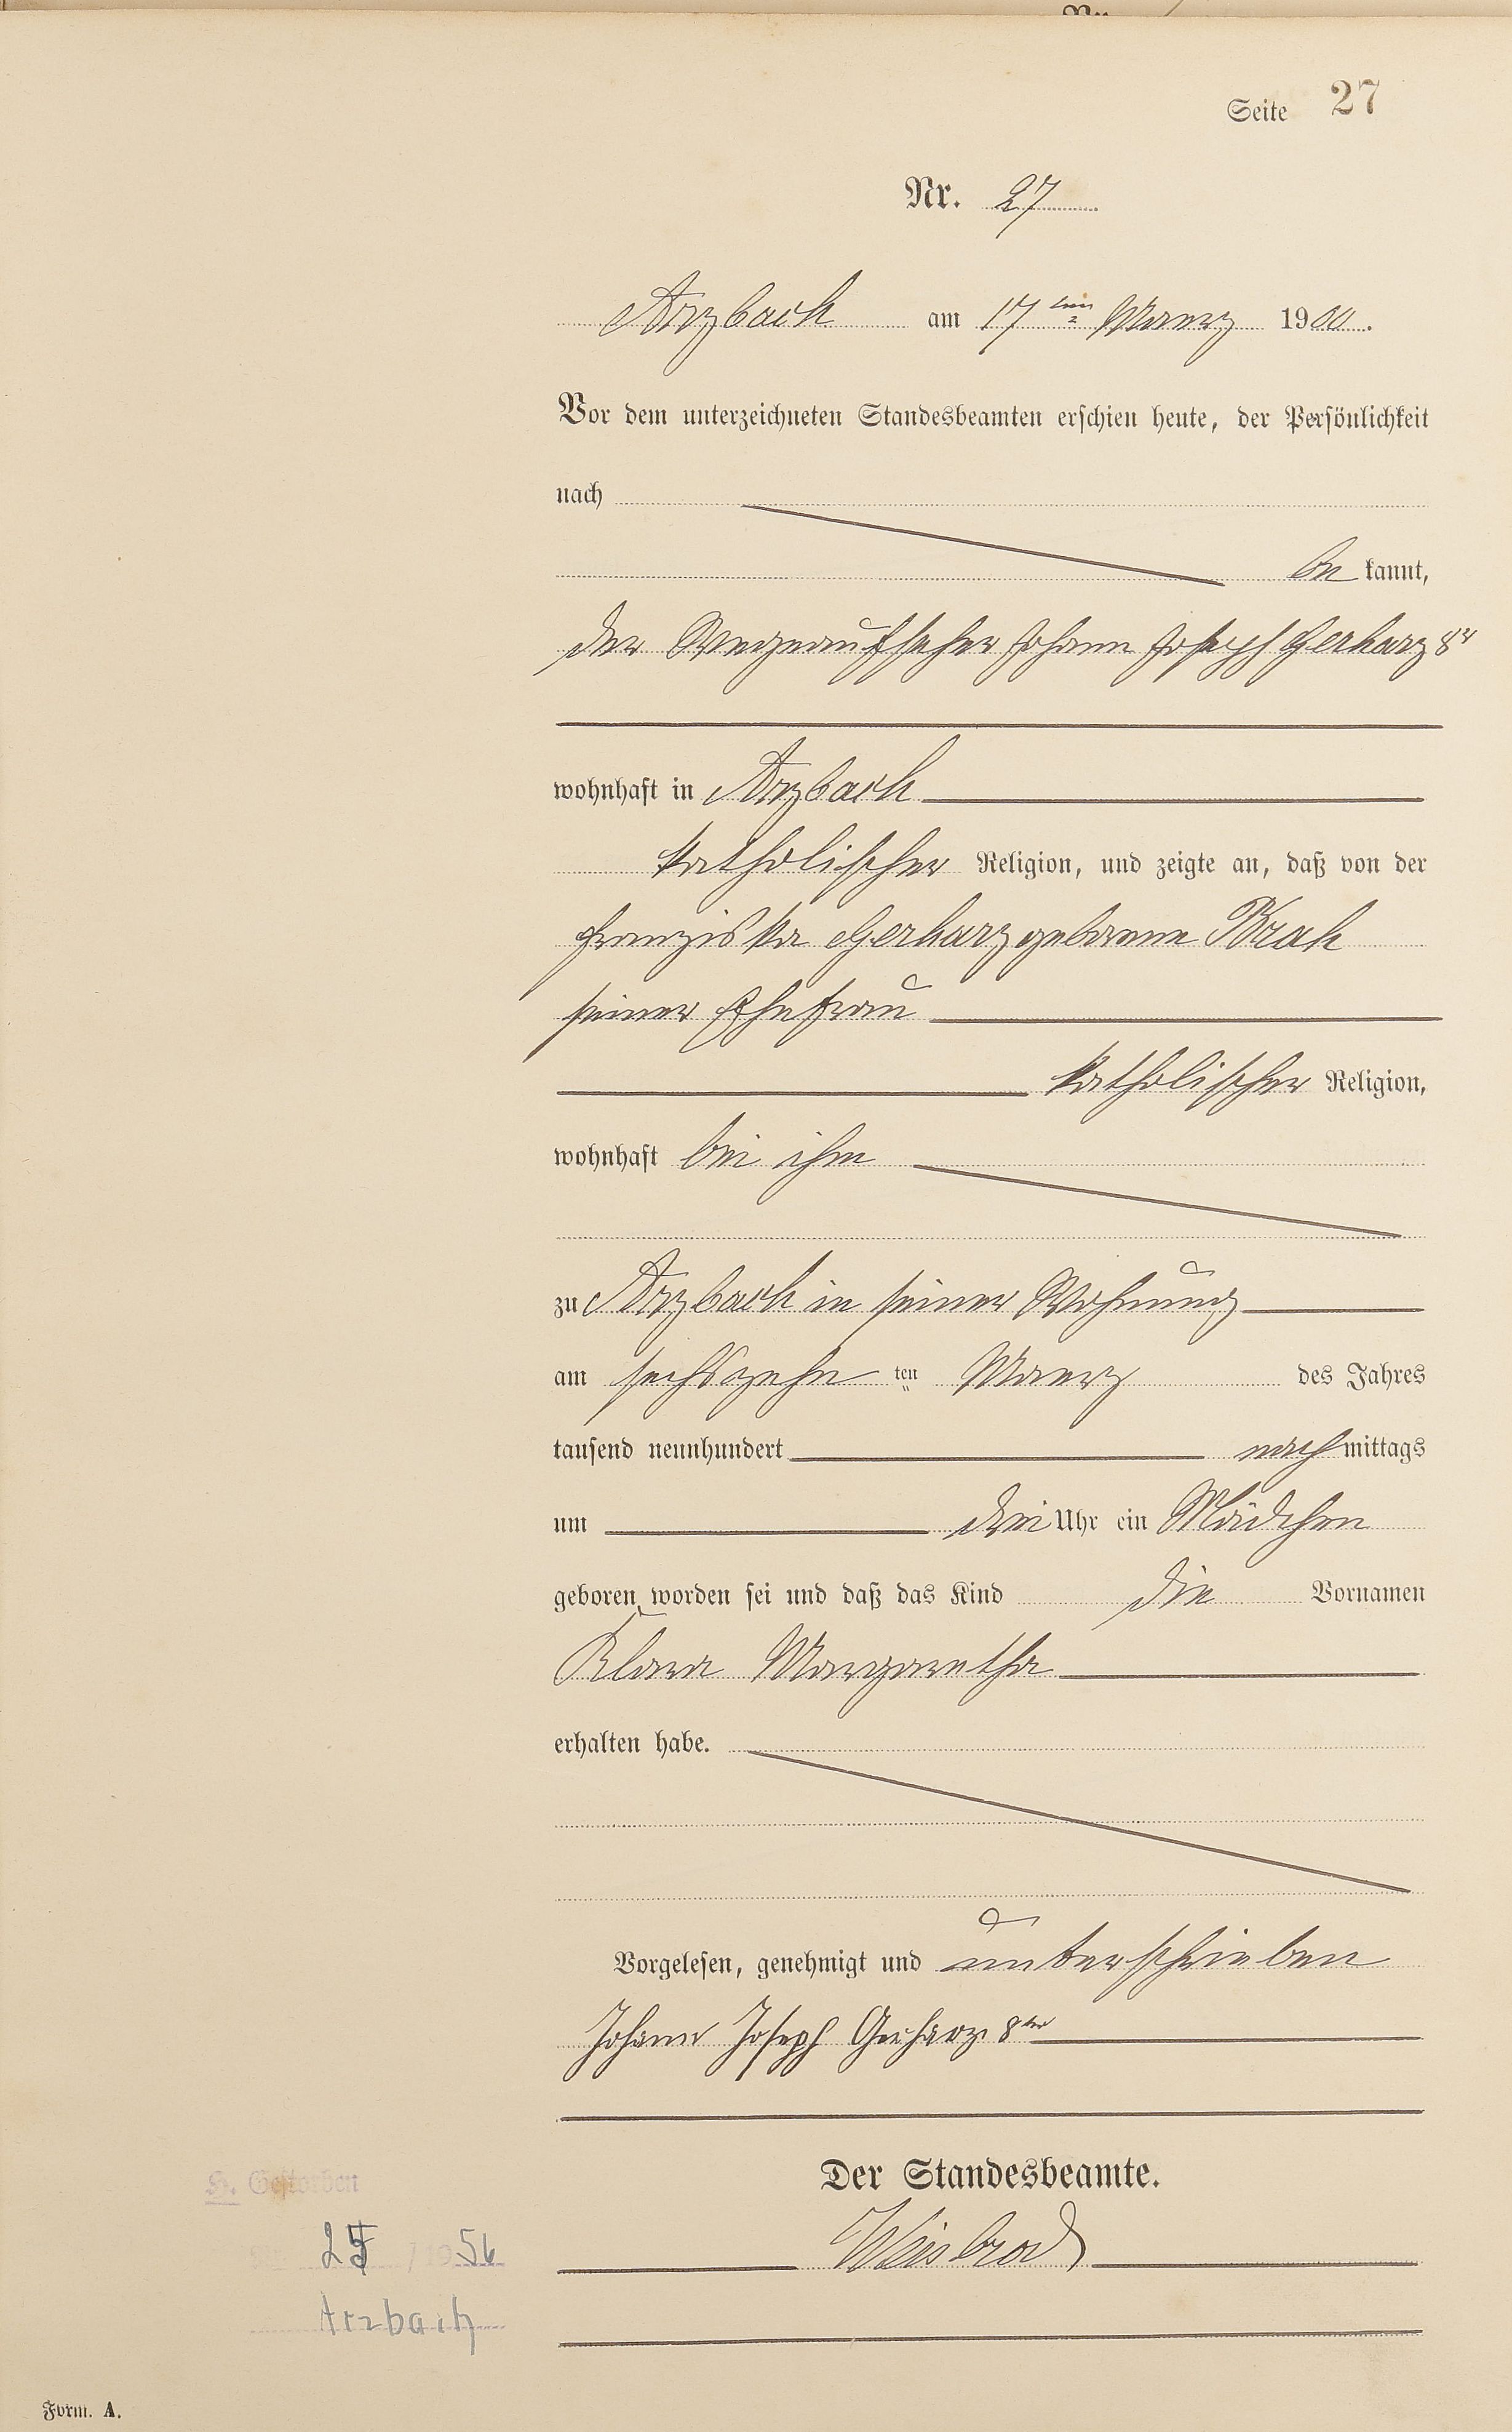 Seite 27
Nr. 27
Arzbach am 17ten Maerz 1900.
Vor dem unterzeichneten Standesbeamten erschien heute, der Persönlichkeit
nach
be kannt,
der Wegeaufseher Johann Joseph Gerharz 8r
wohnhaft in Arzbach
katholischer Religion, und zeigte an, daß von der
Franziska Gerharz geborene Krah
seiner Ehefrau
katholischer Religion,
wohnhaft bei ihm
zu Arzbach in seiner Wohnung
am sechszehn ten Maerz des Jahres
tausend neunhundert nachmittags
um drei Uhr ein Mädchen
geboren worden sei und daß das Kind die Vornamen
Klara Margaretha
erhalten habe.
Vorgelesen, genehmigt und unterschrieben
Johann Joseph Gerharz 8ter
Der Standesbeamte.
Weisbrod
Gestorben
56
Arzbach
Form. A.